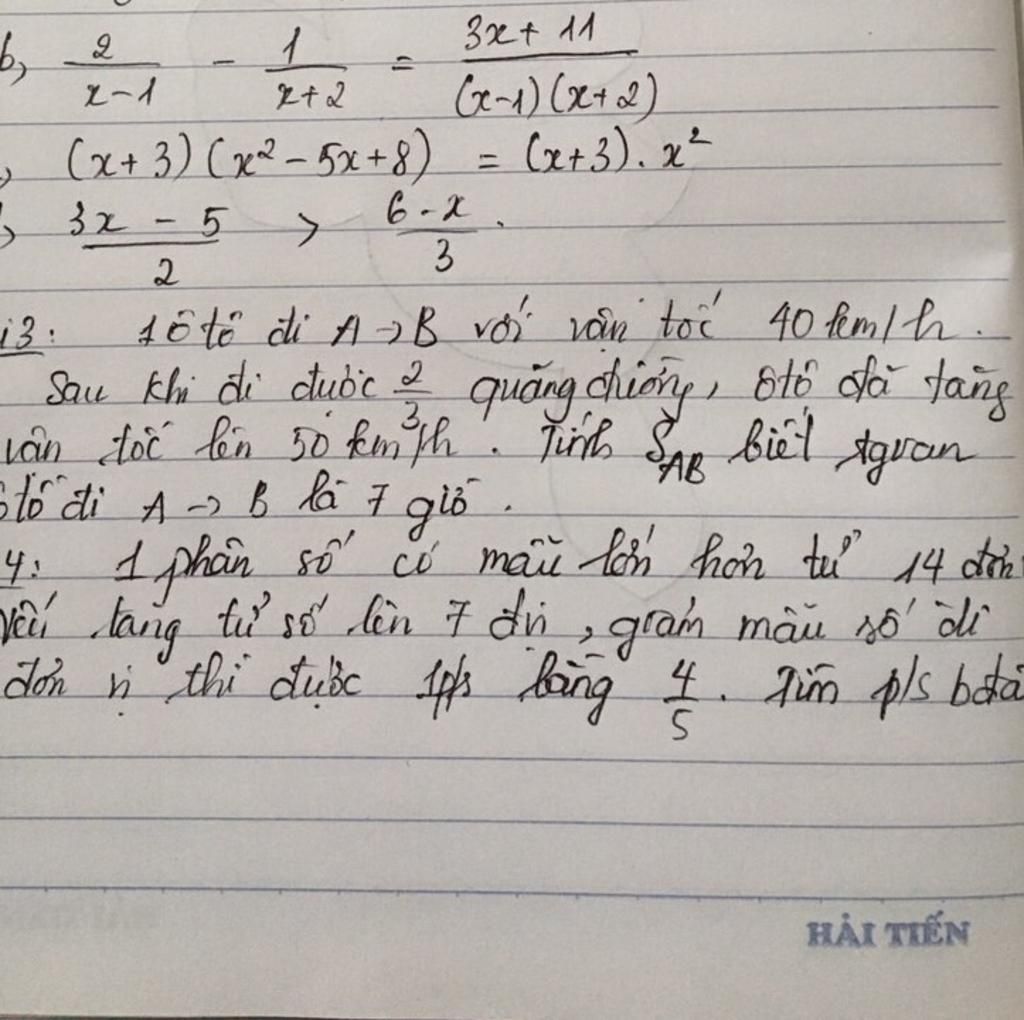 b, 2/(x-1) - 1/(x+2) = (3x+11)/((x-1)(x+2))
, (x+3)(x² - 5x+8) = (x+3). x²
, (3x - 5)/2 > (6-x)/3 .
i3: 1 ôtô đi A → B với vận tốc 40 km/h.
Sau khi đi được 2/3 quãng đường, ôtô đã tăng
vận tốc lên 50 km/h. Tính S_AB biết tgvan
ôtô đi A → B là 7 giờ.
4: 1 phân số có mẫu lớn hơn tử 14 đơn
tăng tử số lên 7 đvị, giảm mẫu số đi
đơn vị thì được 1p/s bằng 4/5. Tìm p/s bđầ
HẢI TIẾN